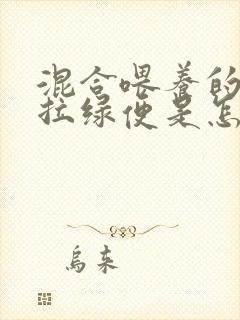 混合喂养的
拉绿便是怎
乌来